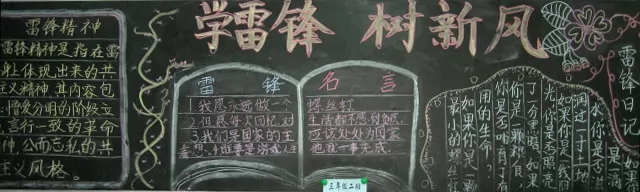 学雷锋 树新风
雷锋精神
雷锋精神是指在雷
射上体现出来的共
主义精神,其内容包
憎爱分明的阶级立
言行一致的革命
神,公而忘私的共
主义风格。
雷锋名言
1.我愿永远做一个
螺丝钉
2.但愿每次回忆,对
生活都不感到负疚
3.我们是国家的主
应该处处为国家
雷锋日记
如果你是一滴
水,你是否滋
润过一寸土地
如果你是一线
阳光,你是否照亮
了一分黑暗?如果
你是一颗粮食
你是否哺育了有
用的生命?
如果你是一颗
最小的螺丝
三年级二班